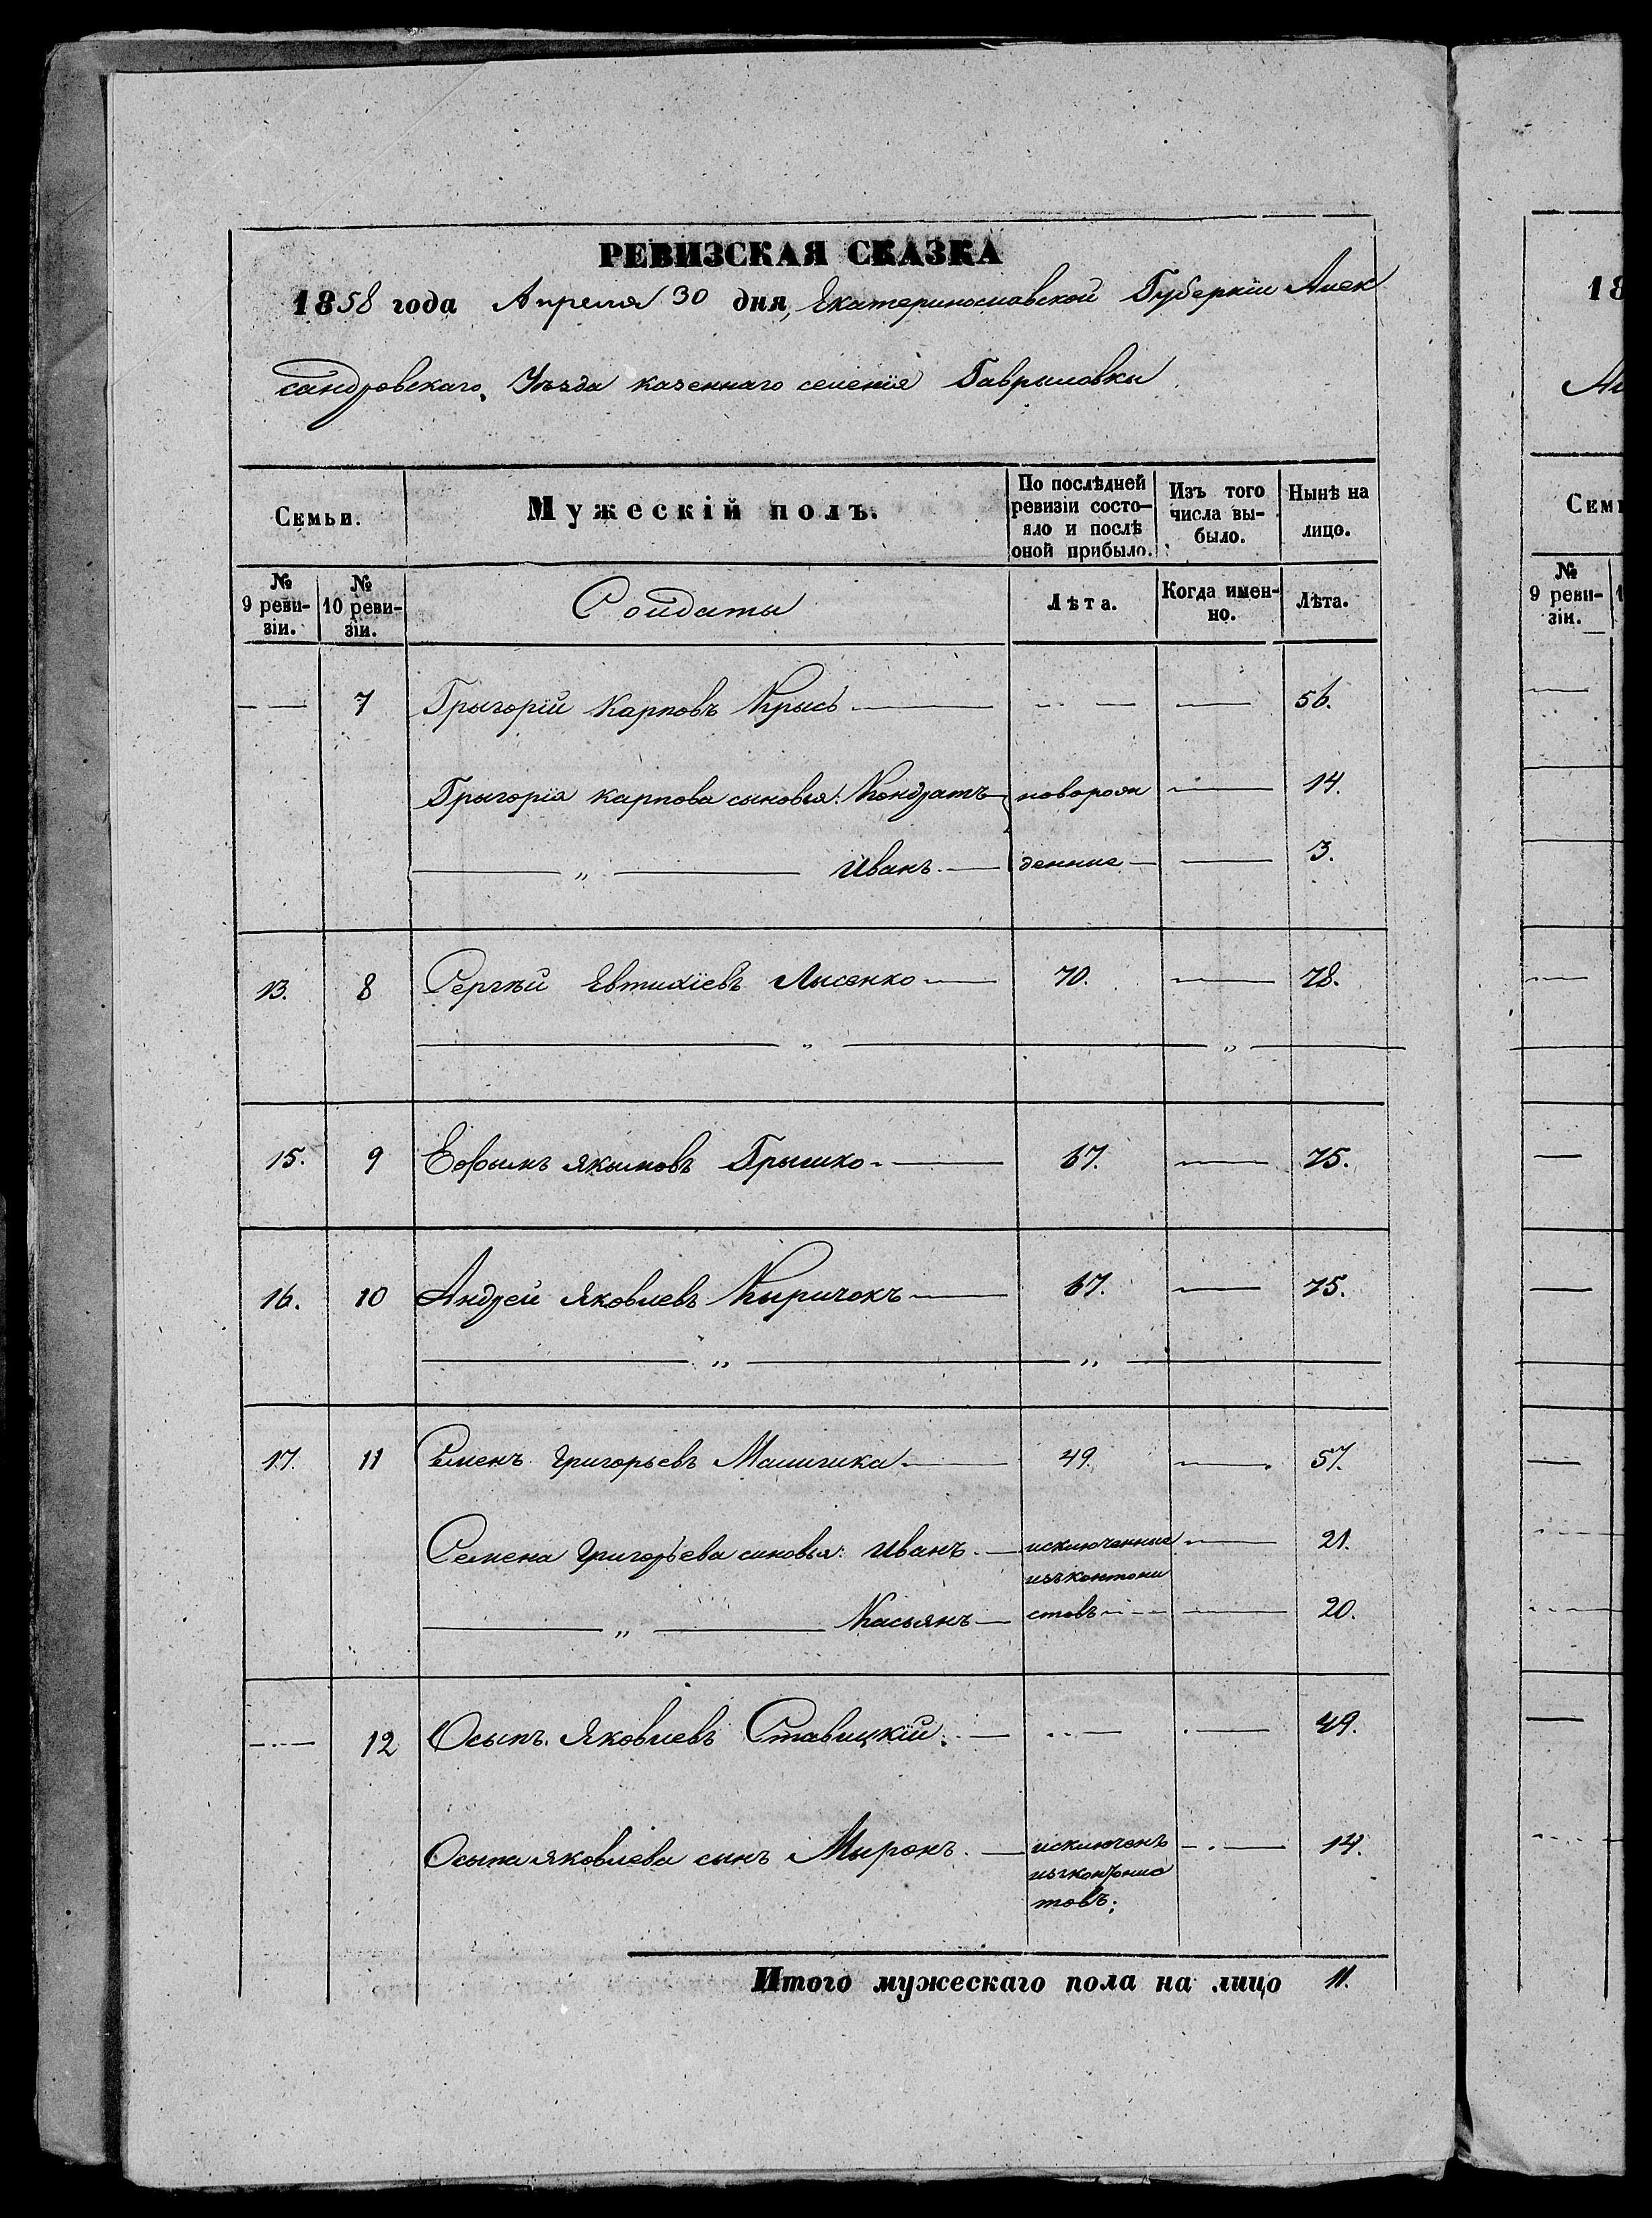 РЕВИЗСКАЯ СКАЗКА
1858 года Апреля 30 дня, Екатеринославской Губернiи Алек
сандровскаго Уѣзда казеннаго селенiя Гаврыловки
Семьи.
Мужескiй полъ.
По послѣдней ревизiи состо-
яло и послѣ оной прибыло.
Изъ того числа вы-
было.
Нынѣ на лицо.
№ 9 реви-
зiи.
№ 10 реви-
зiи.
Солдаты
Лѣта.
Когда имен-
но.
Лѣта.
7 Грыгорiй Карповъ Крысь 56.
Грыгорiя Карпова сыновья: Кондратъ новорож 14.
" Иванъ денные 3.
13. 8 Сергѣй Евтихiевъ Лысенко 70. 78.
" "
15. 9 Ефымъ Якымовъ Грышко 67. 75.
16. 10 Андрей Яковлевъ Кыричокъ 67. 75.
" "
17. 11 Семенъ Григорьевъ 49. 57.
Семена Григорьева сыновья: Иванъ исключенные 21.
изъ кантони
" Касьянъ стовъ 20.
12 Осыпъ Яковлевъ Ставицкiй 49.
Осыпа Яковлева сынъ Мыронъ исключенъ 14.
изъ контонис
товъ;
Итого мужескаго пола на лицо 11.
18
Семь
№
9 реви-
зiи.